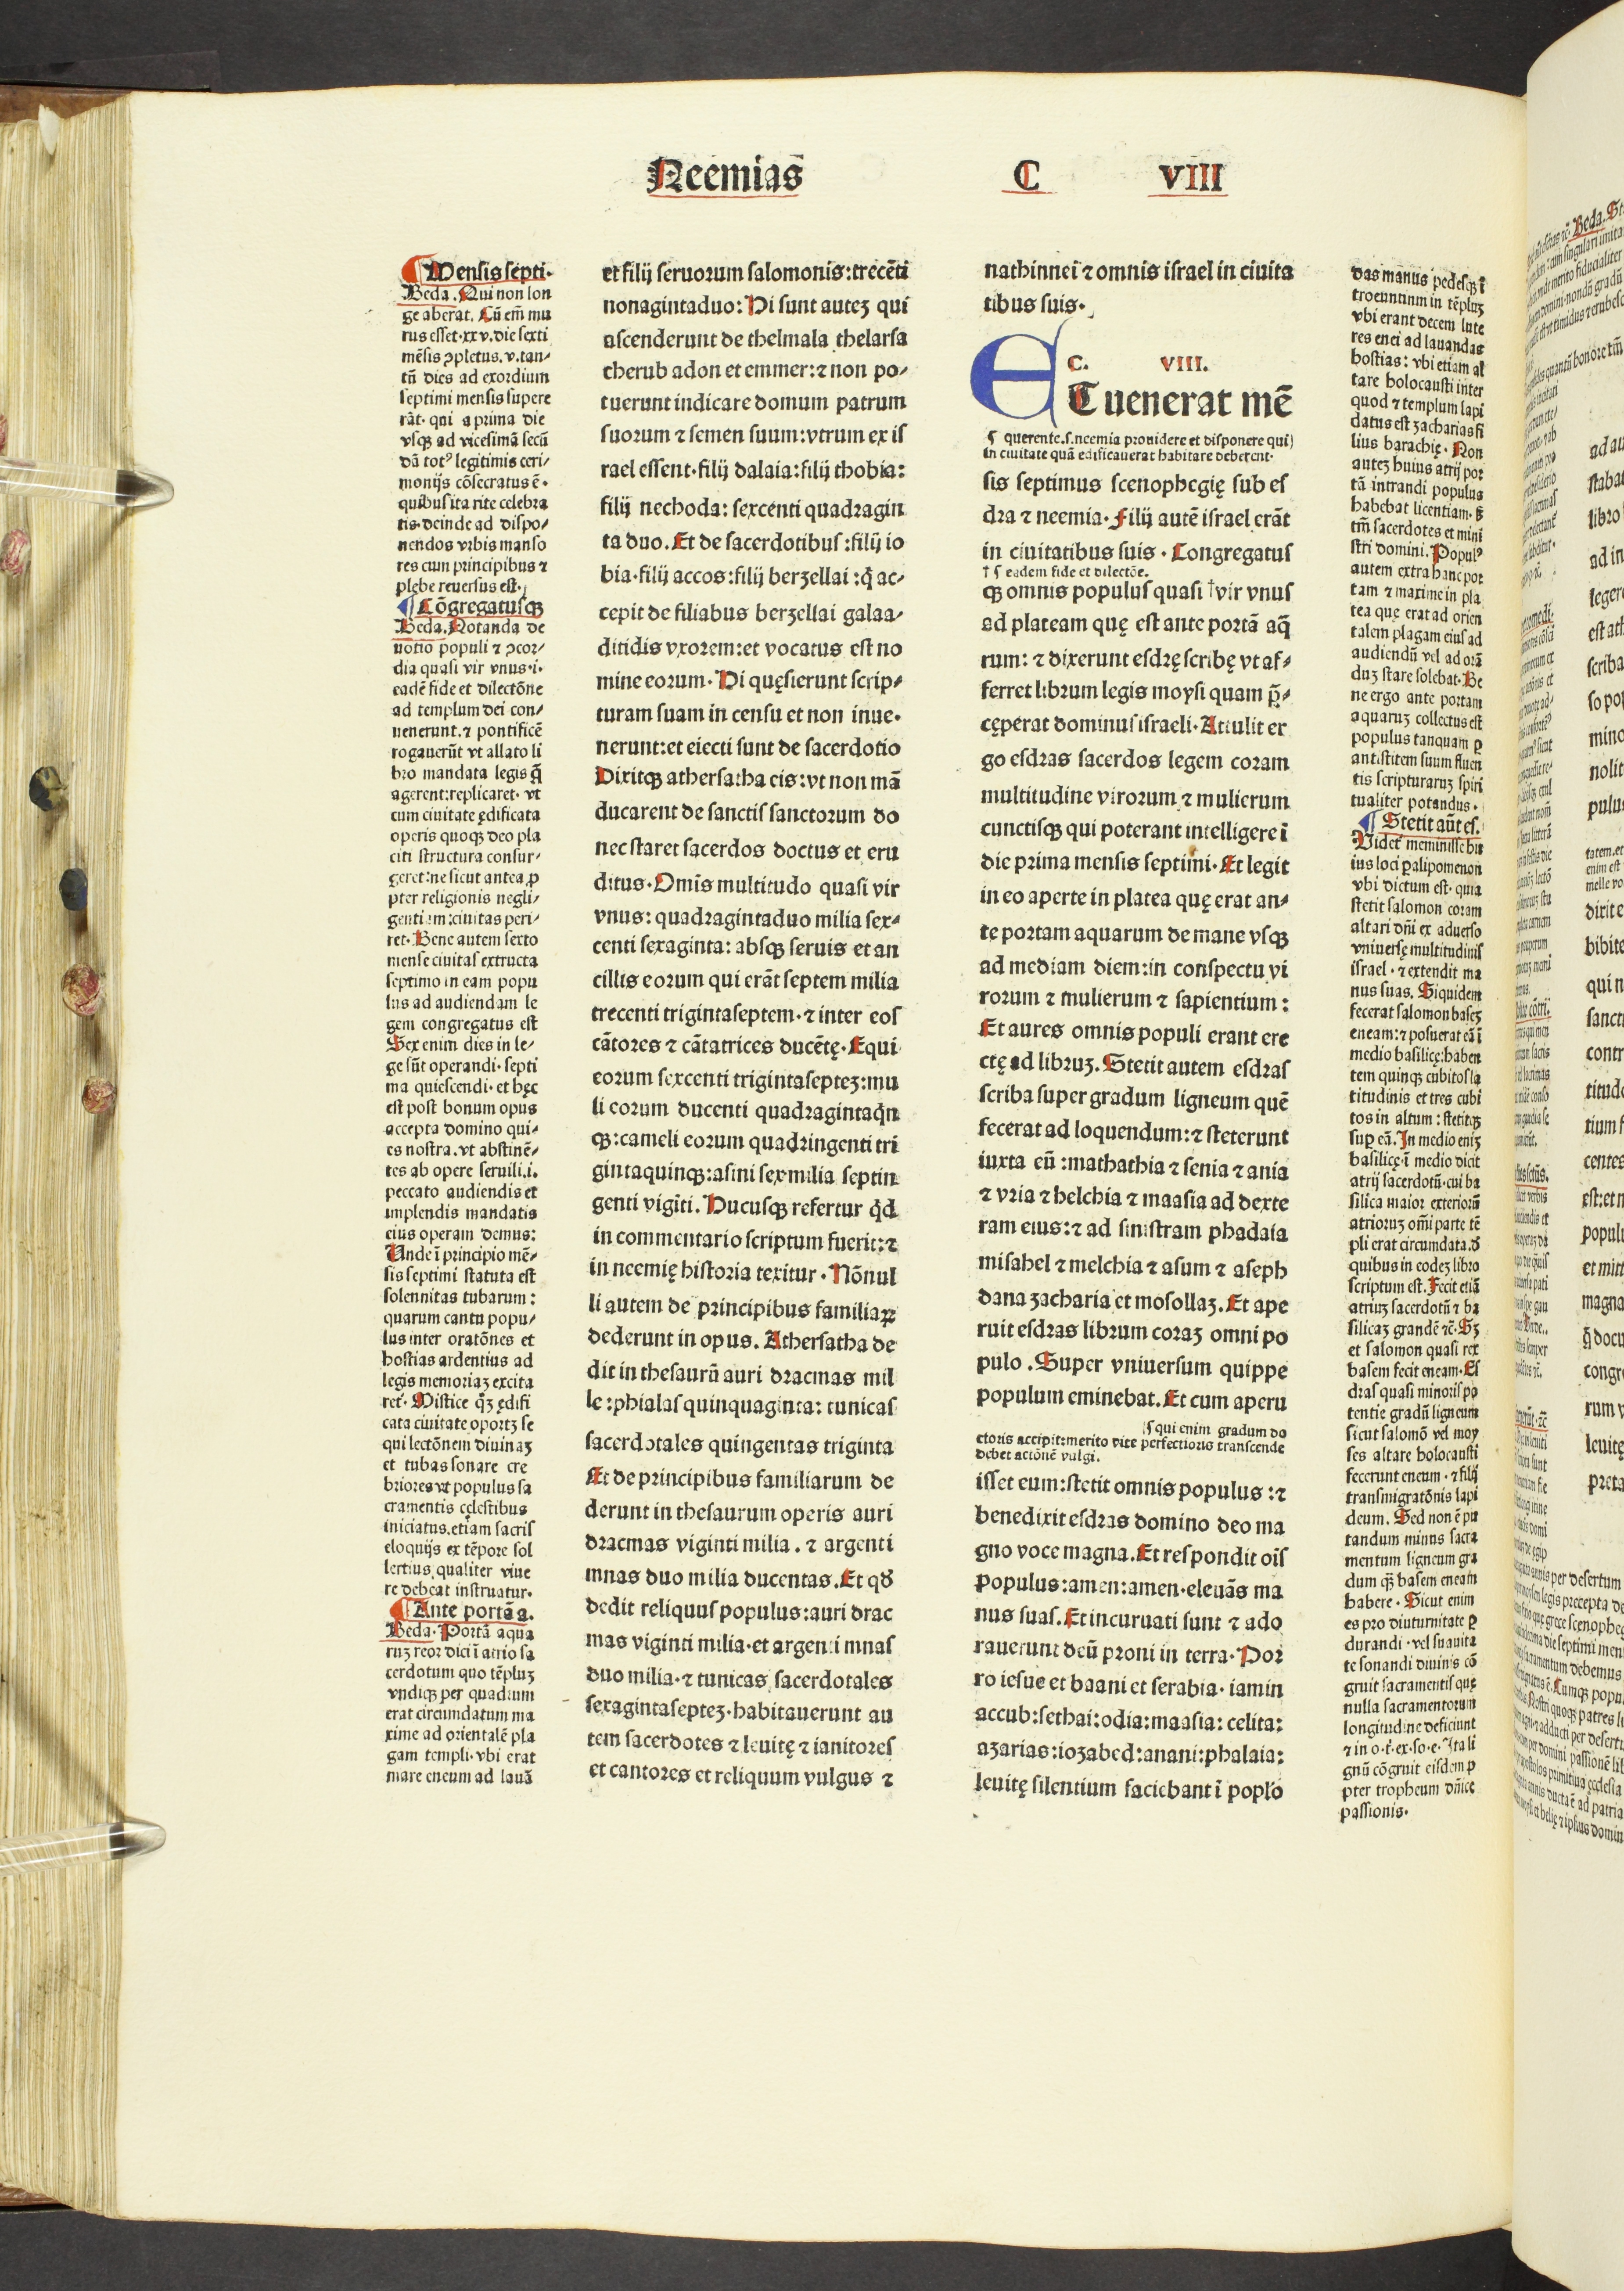 Neemias C VIII
¶ Mensis septi.
Beda. Qui non lon
ge aberat. Cũ em̃ mu
rus esset.xxv.die sexti
mẽsis ꝯpletus.v.tan⸗
tũ dies ad exordium
septimi mensis supere
rãt. qui a prima die
vsqꝫ ad vicesimã secũ
dã totꝰ legitimis ceri⸗
monijs cõsecratus ẽ.
quibus ita rite celebra
tis. deinde ad dispo⸗
nendos vrbis manso
res cum principibus ⁊
plebe reuersus est.
¶ Cõgregatusqꝫ
Beda. Notanda de
uotio populi ⁊ ꝯcor⸗
dia quasi vir vnus.i.
eadẽ fide et dilectõne
ad templum dei con⸗
uenerunt.⁊ pontificẽ
rogauerũt vt allato li
bro mandata legis q̃
agerent:replicaret. vt
cum ciuitate ędificata
operis quoqꝫ deo pla
citi structura consur⸗
geret:ne sicut antea ꝓ
pter religionis negli⸗
gentiam:ciuitas peri⸗
ret. Bene autem sexto
mense ciuitas extructa
septimo in eam popu
lus ad audiendam le
gem congregatus est
Sex enim dies in le⸗
ge sũt operandi. septi
ma quiescendi. et hęc
est post bonum opus
accepta domino qui⸗
es nostra. vt abstinẽ⸗
tes ab opere seruili.i.
peccato audiendis et
implendis mandatis
eius operam demus:
Unde ĩ principio mẽ⸗
sis septimi statuta est
solennitas tubarum:
quarum cantu popu⸗
lus inter oratõnes et
hostias ardentius ad
legis memoriaꝫ excita
ret. Mistice q̃ꝫ ędifi
cata ciuitate oportꝫ se
qui lectõnem diuinaꝫ
et tubas sonare cre
briores vt populus sa
cramentis cęlestibus
iniciatus.etiam sacris
eloquijs ex tẽpore sol
lertius qualiter viue
re debeat instruatur.
¶ Ante portã a.
Beda. Portã aqua
ruꝫ reor dici ĩ atrio sa
cerdotum quo tẽpluꝫ
vndiqꝫ per quadrum
erat circumdatum ma
xime ad orientalẽ pla
gam templi. vbi erat
mare eneum ad lauã
et filij seruorum salomonis:trecẽti
nonagintaduo: Hi sunt auteꝫ qui
ascenderunt de thelmala thelarsa
cherub adon et emmer:⁊ non po⸗
tuerunt indicare domum patrum
suorum ⁊ semen suum:vtrum ex is
rael essent.filij dalaia:filij thobia:
filij nechoda: sexcenti quadragin
ta duo. Et de sacerdotibus:filij io
bia.filij accos:filij berꝫellai:q̇ ac⸗
cepit de filiabus berꝫellai galaa⸗
ditidis vxorem:et vocatus est no
mine eorum. Hi quęsierunt scrip⸗
turam suam in censu et non inue.
nerunt:et eiecti sunt de sacerdotio
Dixitqꝫ athersatha eis:vt non mã
ducarent de sanctis sanctorum do
nec staret sacerdos doctus et eru
ditus. Omĩs multitudo quasi vir
vnus: quadragintaduo milia sex⸗
centi sexaginta: absqꝫ seruis et an
cillis eorum qui erãt septem milia
trecenti trigintaseptem.⁊ inter eos
cãtores ⁊ cãtatrices ducẽtę. Equi
eorum sexcenti trigintasepteꝫ:mu
li eorum ducenti quadragintaq̇n
qꝫ:cameli eorum quadringenti tri
gintaquinqꝫ:asini sex milia septin
genti vigĩti. Hucusqꝫ refertur q̇d
in commentario scriptum fuerit:⁊
in neemię historia texitur. Nõnul
li autem de principibus familiaꝝ
dederunt in opus. Athersatha de
dit in thesaurũ auri dracmas mil
le:phialas quinquaginta: tunicas
sacerdotales quingentas triginta
Et de principibus familiarum de
derunt in thesaurum operis auri
dracmas viginti milia. ⁊ argenti
mnas duo milia ducentas. Et qđ
dedit reliquus populus:auri drac
mas viginti milia.et argenti mnas
duo milia.⁊ tunicas sacerdotales
sexagintasepteꝫ.habitauerunt au
tem sacerdotes ⁊ leuitę ⁊ ianitores
et cantores et reliquum vulgus ⁊
nathinnei ⁊ omnis israel in ciuita
tibus suis.
C. VIII.
ET uenerat mẽ
¶ querente.s.neemia prouidere et disponere qui)
in ciuitate quã edificauerat habitare deberent.
sis septimus scenophegię sub es
dra ⁊ neemia. Filij autẽ israel erãt
in ciuitatibus suis. Congregatus
† s eadem fide et dilectõe.
qꝫ omnis populus quasi †vir vnus
ad plateam quę est ante portã aq̃
rum: ⁊ dixerunt esdrę scribę vt af⸗
ferret librum legis moysi quam p̃⸗
cęperat dominus israeli. Attulit er
go esdras sacerdos legem coram
multitudine virorum ⁊ mulierum
cunctisqꝫ qui poterant intelligere ĩ
die prima mensis septimi. Et legit
in eo aperte in platea quę erat an⸗
te portam aquarum de mane vsqꝫ
ad mediam diem:in conspectu vi
rorum ⁊ mulierum ⁊ sapientium:
Et aures omnis populi erant ere
ctę ad libruꝫ. Stetit autem esdras
scriba super gradum ligneum quẽ
fecerat ad loquendum:⁊ steterunt
iuxta eũ:mathathia ⁊ senia ⁊ ania
⁊ vria ⁊ helchia ⁊ maasia ad dexte
ram eius:⁊ ad sinistram phadaia
misahel ⁊ melchia ⁊ asum ⁊ aseph
dana ꝫacharia et mosollaꝫ. Et ape
ruit esdras librum coraꝫ omni po
pulo. Super vniuersum quippe
populum eminebat. Et cum aperu
¶ qui enim gradum do
ctoris accipit:merito vite perfectioris transcende
debet actõnẽ vulgi.
isset eum:stetit omnis populus:⁊
benedixit esdras domino deo ma
gno voce magna. Et respondit oĩs
populus:amen:amen.eleuãs ma
nus suas. Et incuruati sunt ⁊ ado
rauerunt deũ proni in terra. Por
ro iesue et baani et serabia. iamin
accub:sethai:odia:maasia: celita:
aꝫarias:ioꝫabed:anani:phalaia:
leuitę silentium faciebant ĩ poplo
das manus pedesqꝫ ĩ
troeuntium in tẽpluꝫ
vbi erant decem lute
res enei ad lauandas
hostias: vbi etiam al
tare holocausti inter
quod ⁊ templum lapi
datus est ꝫacharias fi
lius barachię. Non
auteꝫ huius atrij por
tã intrandi populus
habebat licentiam. sꝫ
tm̃ sacerdotes et mini
stri domini. Populꝰ
autem extra hanc por
tam ⁊ maxime in pla
tea quę erat ad orien
talem plagam eius ad
audiendũ vel ad orã
duꝫ stare solebat. Be
ne ergo ante portam
aquaruꝫ collectus est
populus tanquam ꝑ
antistitem suum fluen
tis scripturaruꝫ spiri
tualiter potandus.
¶ Stetit aũt es.
Videt meminisse hu
ius loci ꝑalipomenon
vbi dictum est. quia
stetit salomon coram
altari dñi ex aduerso
vniuersę multitudinis
israel. ⁊ extendit ma
nus suas. Siquidem
fecerat salomon baseꝫ
eneam:⁊ posuerat eã ĩ
medio basilicę:haben
tem quinqꝫ cubitos la
titudinis et tres cubi
tos in altum: stetitqꝫ
suꝑ eã. In medio eniꝫ
basilicę.ĩ medio dicit
atrij sacerdotũ.cui ba
silica maior exteriorũ
atrioruꝫ om̃i parte tẽ
pli erat circumdata.đ
quibus in codeꝫ libro
scriptum est. Fecit etiã
atriuꝫ sacerdotũ ⁊ ba
silicaꝫ grandẽ ⁊c̃. Sꝫ
et salomon quasi rex
basem fecit eneam. Es
dras quasi minoris po
tentie gradũ ligneum
sicut salomõ vel moy
ses altare holocausti
fecerunt eneum. ⁊ filij
transmigratõnis lapi
deum. Sed non ẽ pu
tandum minus sacra
mentum ligneum gra
dum q̃ꝫ basem eneam
habere. Sicut enim
es pro diuturnitate ꝑ
durandi. vel suauita
te sonandi diuinis cõ
gruit sacramentis quę
nulla sacramentorum
longitudine deficiunt
⁊ in o.t̃.ex.so.e. Ita li
gnũ cõgruit eisdem ꝓ
pter tropheum dñice
passionis.